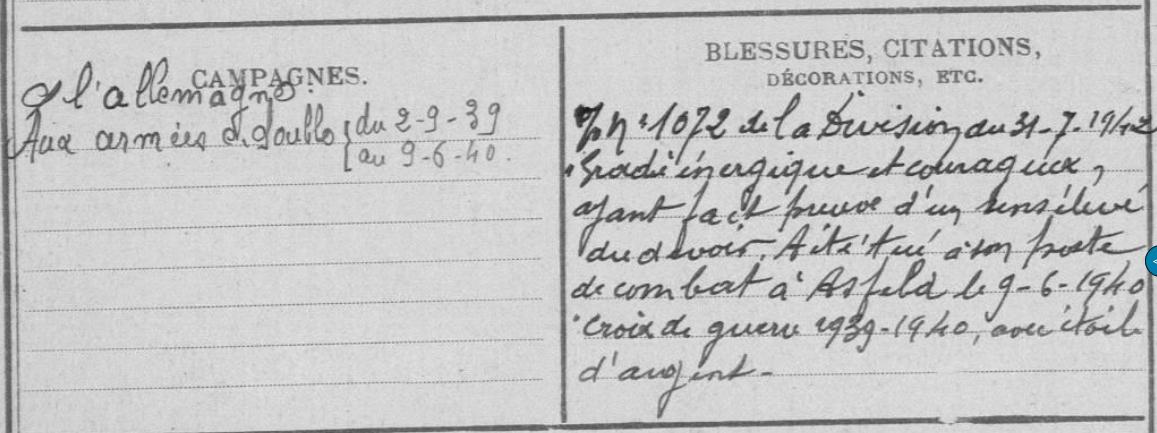 CAMPAGNES.
l'allemagne
Aux armées d. double du 2-9-39
au 9-6-40.
BLESSURES, CITATIONS,
DÉCORATIONS, ETC.
n° 1072 de la Division du 31-7-1942
"Gradé énergique et courageux,
ayant fait preuve d'un sens élevé
du devoir. A été tué à son poste
de combat à Asfeld le 9-6-1940
"Croix de guerre 1939-1940, avec étoile
d'argent-